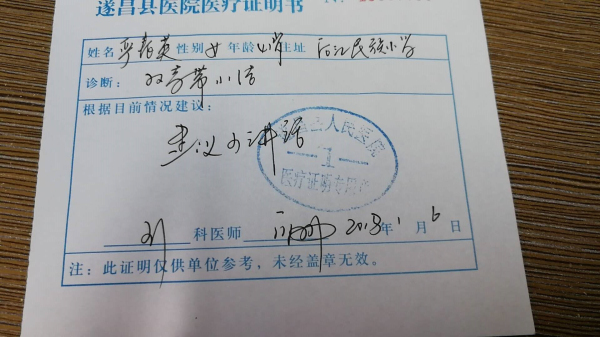 遂昌县医院医疗证明书 No
姓名 性别 女 年龄 住址 民族小学
诊断: 双声带小结
根据目前情况建议:
建议少讲话
人民医院
1
医疗证明专用章
科医师 年1月6日
注:此证明仅供单位参考,未经盖章无效。